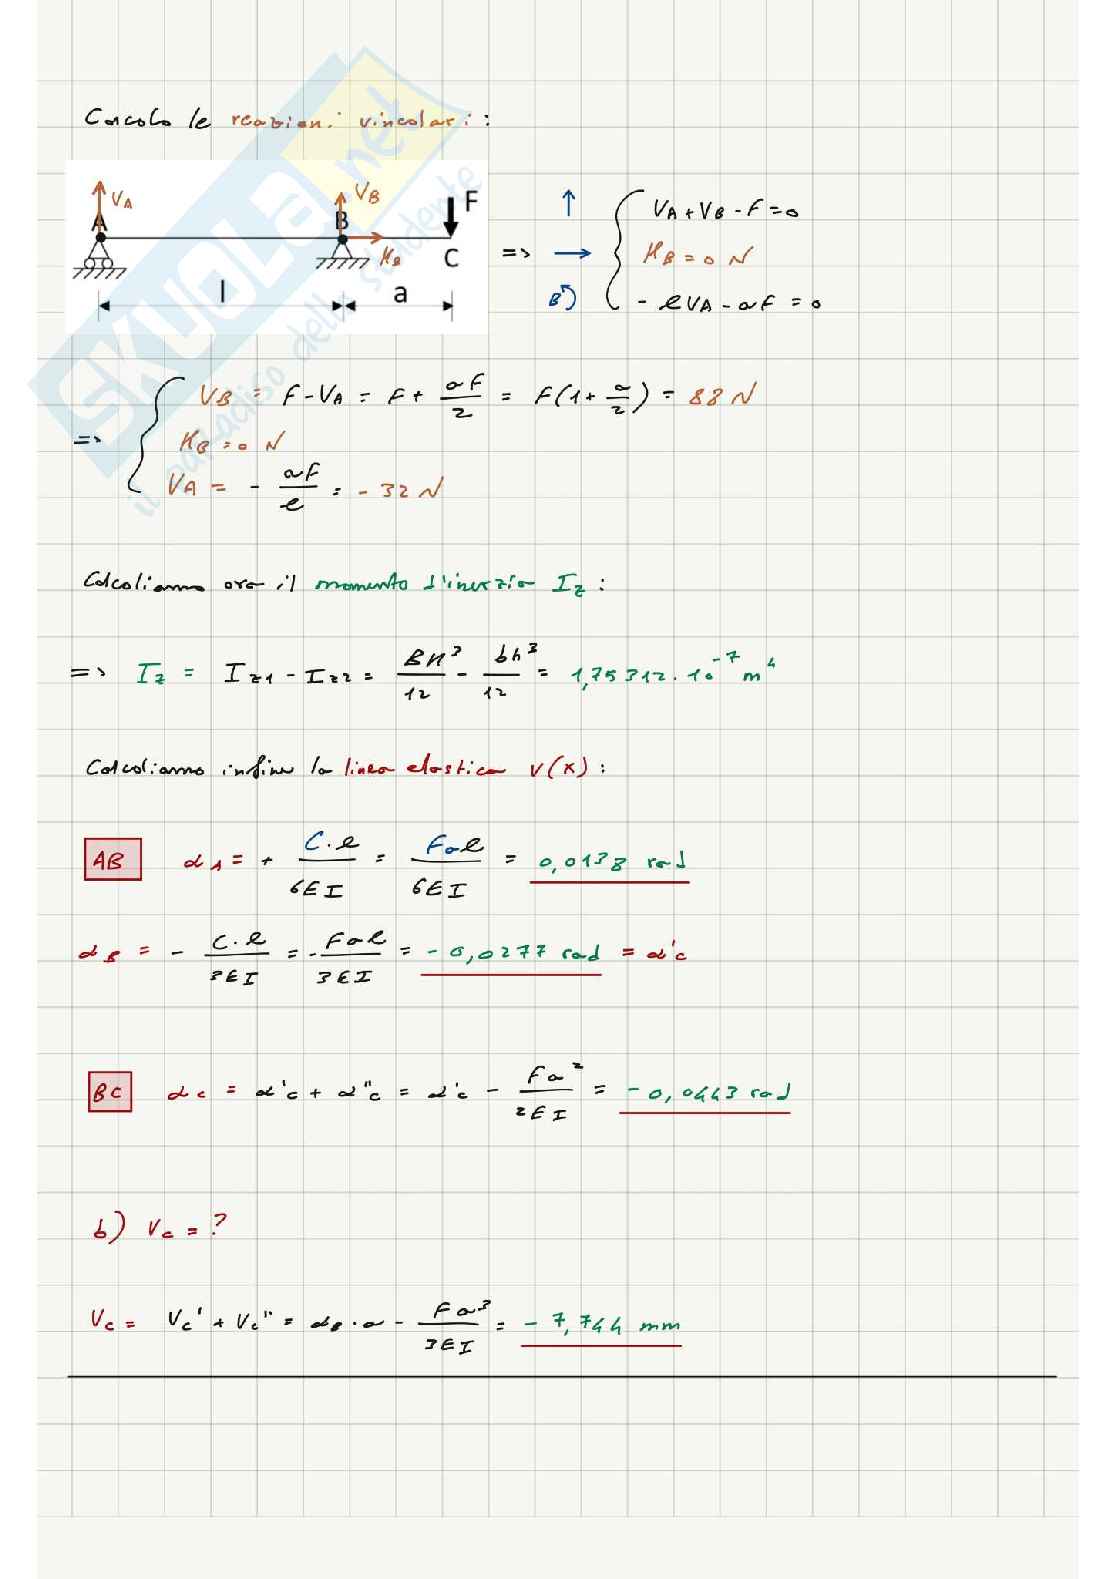 Calcolo le reazioni vincolari :
V_A V_B F
A B H_B C
l a
SKUOLA.net
il paradiso dello studente
=> ↑ V_A + V_B - F = 0
→ H_B = 0 N
B↺ - l V_A - a F = 0
=> V_B = F - V_A = F + aF/2 = F(1 + a/2) = 88 N
H_B = 0 N
V_A = - aF/l = - 32 N
Calcoliamo ora il momento d'inerzia I_z :
=> I_z = I_z1 - I_z2 = BH³/12 - bh³/12 = 1,75312 · 10⁻⁷ m⁴
Calcoliamo infine la linea elastica v(x) :
AB α_A = + C·l/6EI = Fal/6EI = 0,0138 rad
α_B = - C·l/3EI = - Fal/3EI = - 0,0277 rad = α'c
BC α_c = α'c + α''c = α'c - Fa²/2EI = - 0,0443 rad
b) V_c = ?
V_c = V_c' + V_c'' = α_B · a - Fa³/3EI = - 7,744 mm